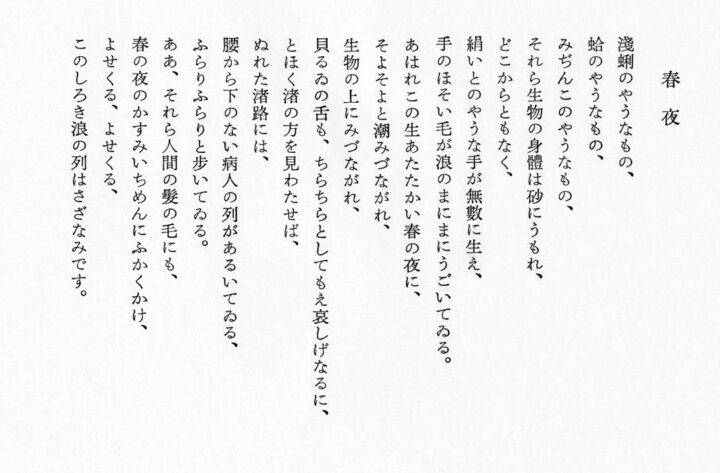 春夜
淺蜊のやうなもの、
蛤のやうなもの、
みぢんこのやうなもの、
それら生物の身體は砂にうもれ、
どこからともなく、
絹いとのやうな手が無數に生え、
手のほそい毛が浪のまにまにうごいてゐる。
あはれこの生あたたかい春の夜に、
そよそよと潮みづながれ、
生物の上にみづながれ、
貝るゐの舌も、ちらちらとしてもえ哀しげなるに、
とほく渚の方を見わたせば、
ぬれた渚路には、
腰から下のない病人の列があるいてゐる、
ふらりふらりと歩いてゐる。
ああ、それら人間の髮の毛にも、
春の夜のかすみいちめんにふかくかけ、
よせくる、よせくる、
このしろき浪の列はさざなみです。